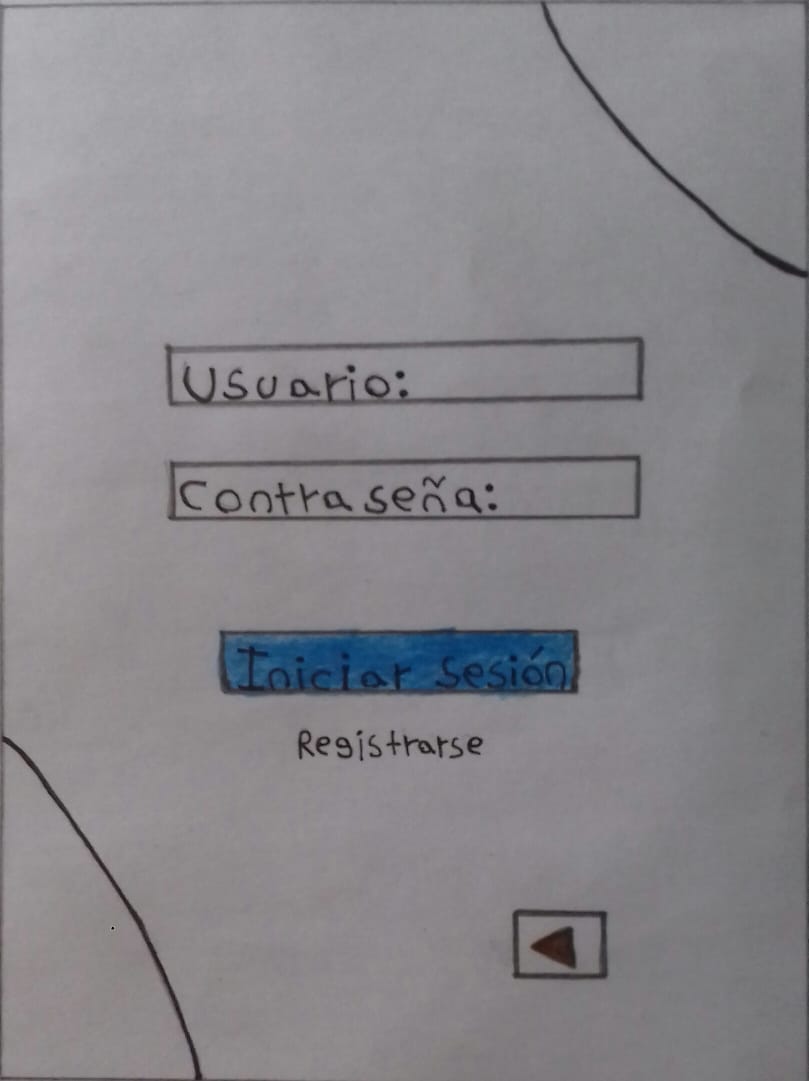 Usuario:
Contraseña:
Iniciar sesión
Registrarse